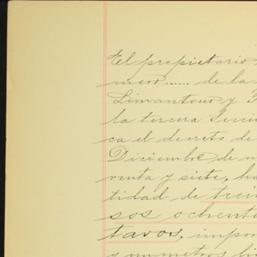 El propietario
mero...... de la
Limantour y
la tercera
ca el decreto de
Diciembre de
venta y siete, ha
tidad de trein
sos ochent
tavos, impo
y un metros